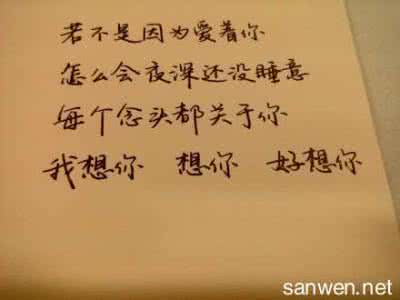 若不是因为爱着你
怎么会夜深还没睡意
每个念头都关于你
我想你 想你 好想你
sanwen.net